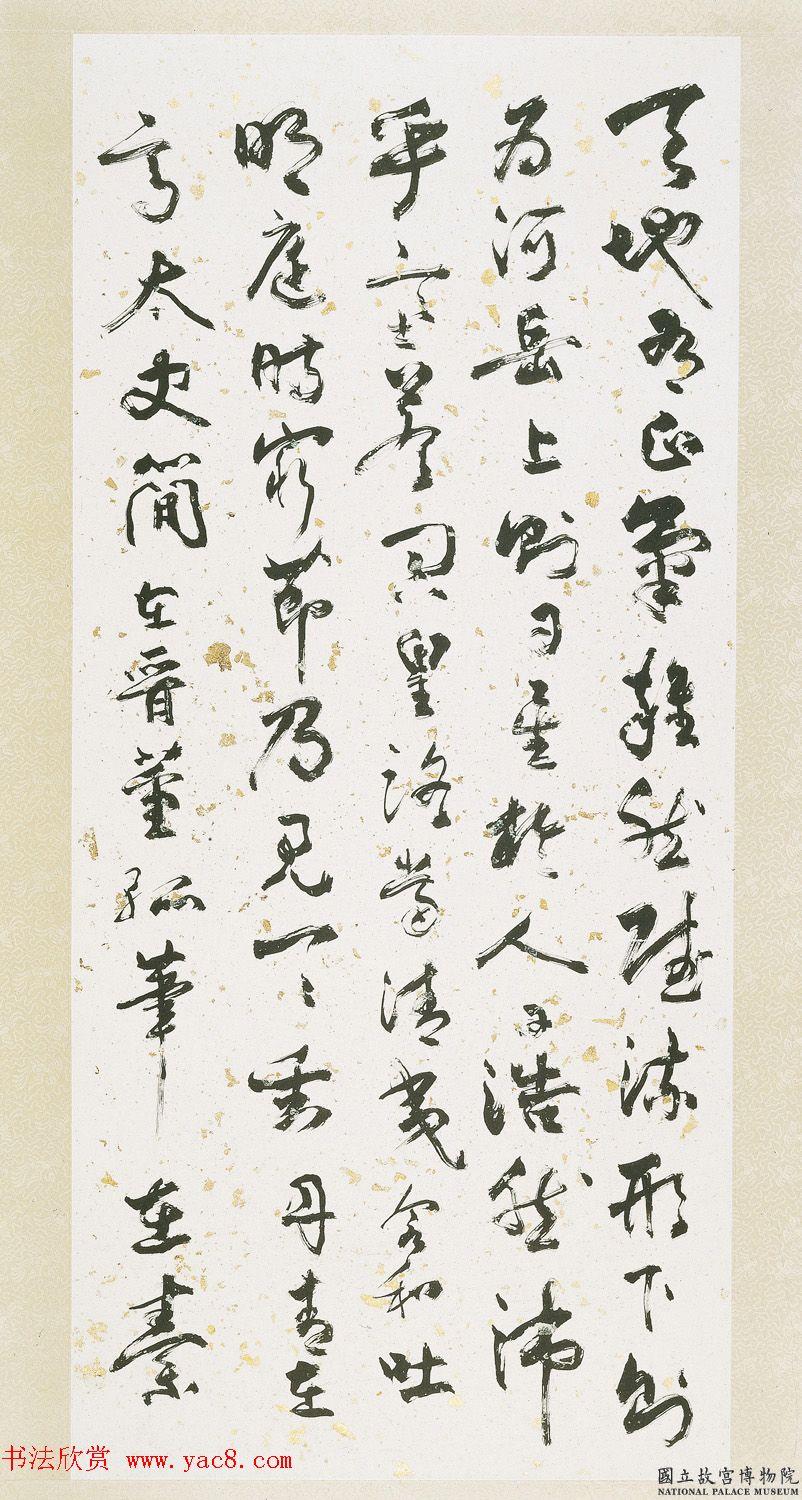 天地有正氣雜然賦流形下則
為河岳上則日星於人曰浩然沛
乎塞蒼冥皇路當清夷含和吐
明庭時窮節乃見一一垂丹青在
齊太史簡在晉董狐筆在秦
书法欣赏 www.yac8.com
國立故宮博物院
NATIONAL PALACE MUSEUM